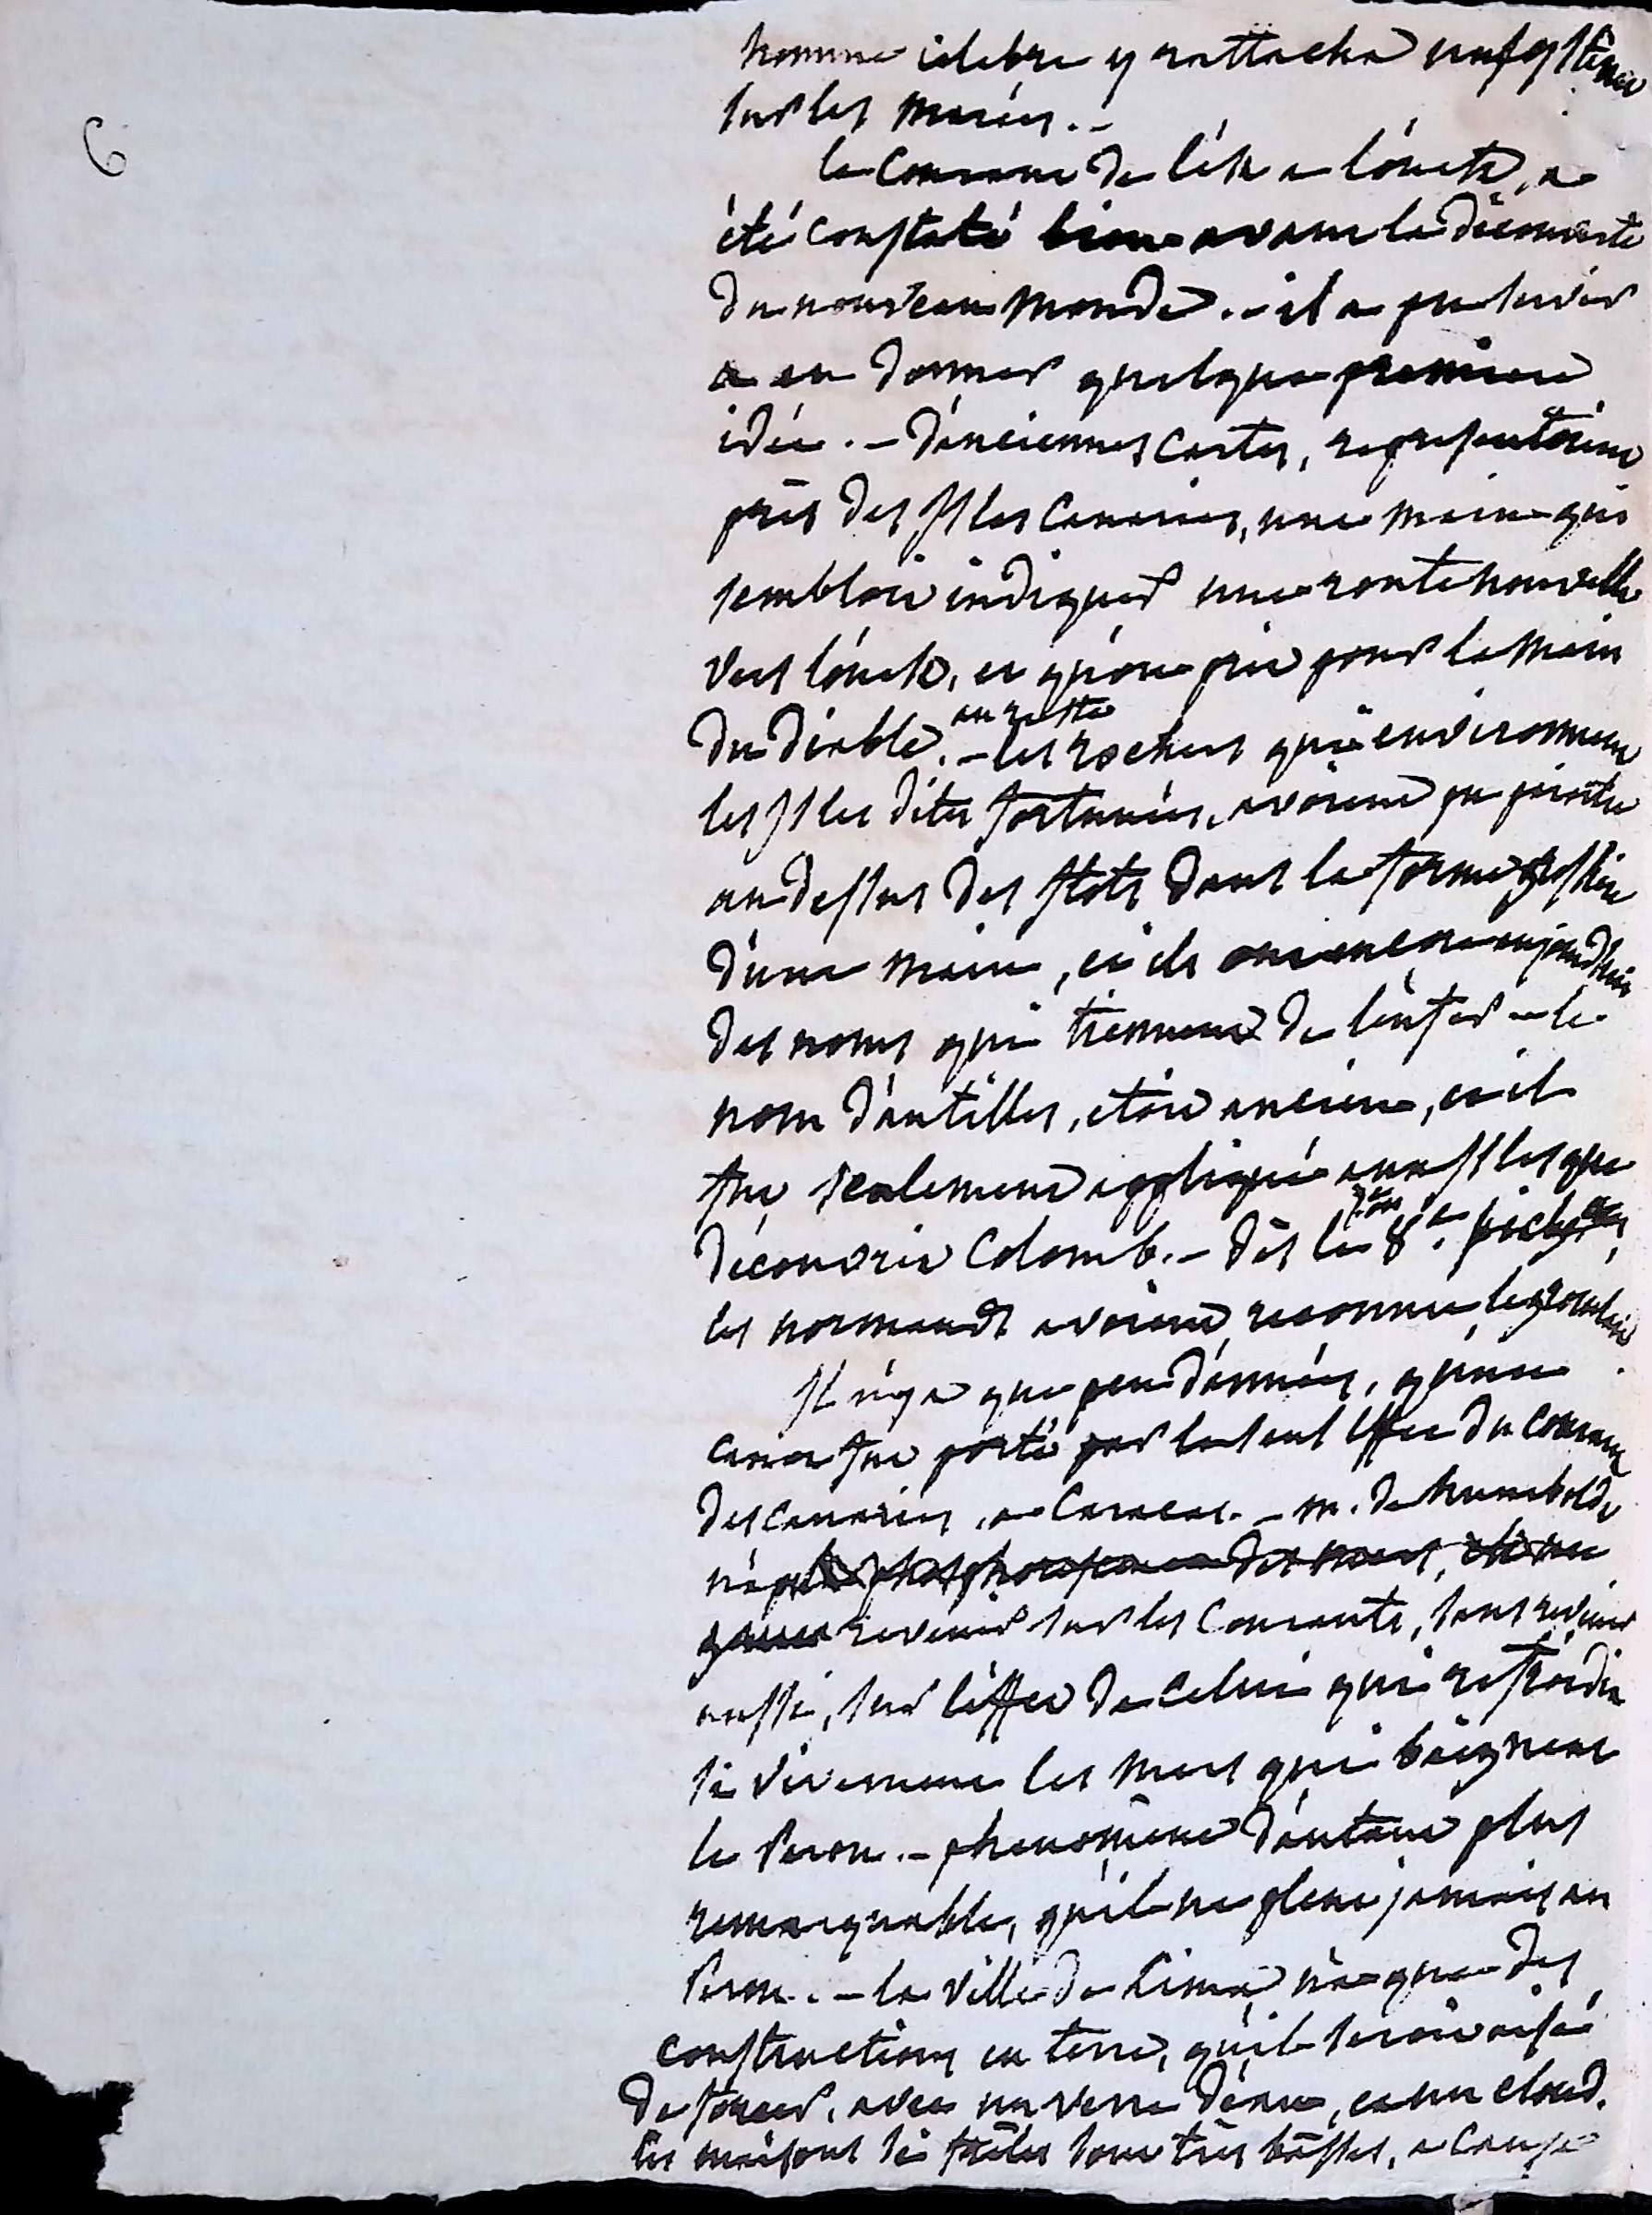 6
homme célebre y rattacha un système
sur les marées. -
le Courant de l'ést a l'ouest, a
été constaté bien avant la découverte
du nouveau monde. - il a pu servir
a en donner quelque premiere
idée. - d'anciennes cartes, representoient
près des Isles Canaries, une main qui
sembloit indiquer une route nouvelle
vers l'ouest, et qu'on prit pour la main
au reste
du diable. - les rochers qui environnent
les Isles dites fortunées, avoient pu paroitre
au dessus des flots dans la forme grossière
d'une main, et ils ont encore aujourd'hui
des noms qui tiennent de l'enfer - le
nom d'antilles, etoit ancien, et il
fut seulement appliqué aux Isles que
découvrit Colomb. - dès le 8e. siècle,
les normands avoient reconnu le groenland.
Il n'y a que peu d'années, qu'un
canot fut porté par le seul effet du Courant
des canaries, a Caracas. - m. de humboldt
n'a pu phosphorescence des mers,
revenir sur les Courants, sans revenir
aussi, sur l'éffet de celui qui refroidit
si vivement les mers qui baignent
le Perou. - phenomène d'autant plus
remarquable, qu'il ne pleut jamais au
Perou. - la ville de Lima, n'a que des
constructions en terre, qu'il seroit aisé
de forcer, avec un verre d'eau, et un cloud.
les maisons si frêles sont très basses, a cause